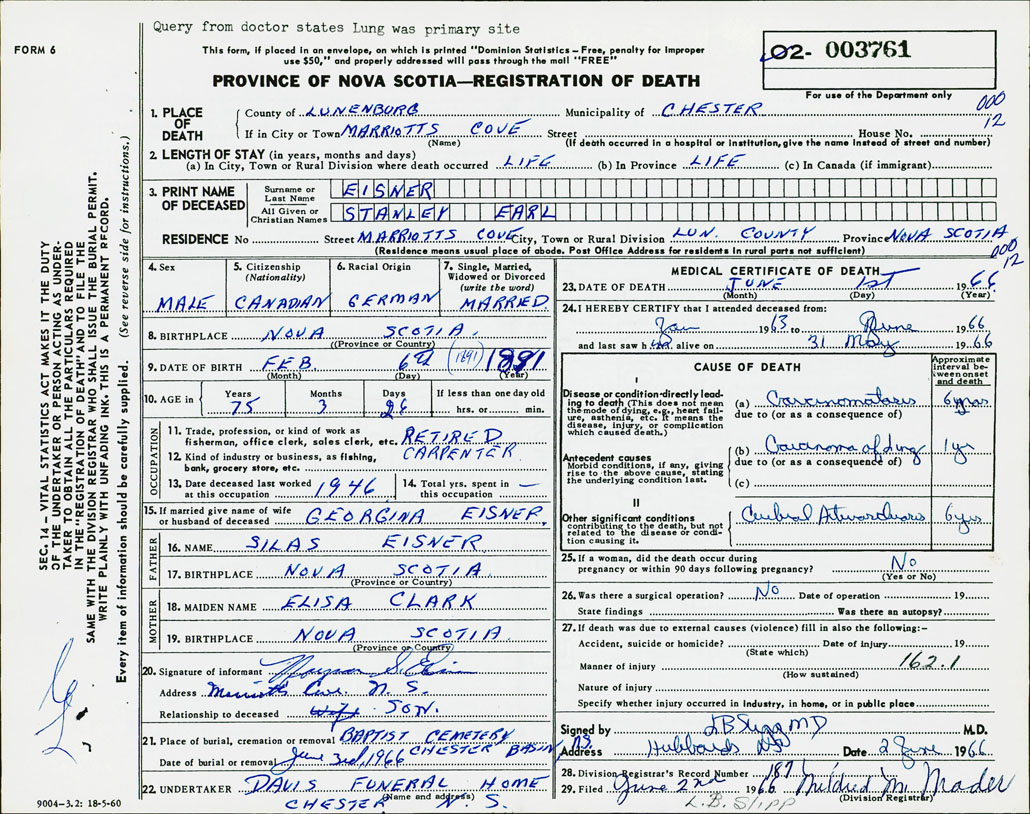 Query from doctor states Lung was primary site
FORM 6
This form, if placed in an envelope, on which is printed "Dominion Statistics – Free, penalty for improper
use $50," and properly addressed will pass through the mail "FREE"
02- 003761
PROVINCE OF NOVA SCOTIA—REGISTRATION OF DEATH
For use of the Department only
000
12
1. PLACE OF DEATH
County of LUNENBURG Municipality of CHESTER
If in City or Town MARRIOTTS COVE Street House No.
(Name) (If death occurred in a hospital or institution, give the name instead of street and number)
2. LENGTH OF STAY (in years, months and days)
(a) In City, Town or Rural Division where death occurred LIFE (b) In Province LIFE (c) In Canada (if immigrant)
3. PRINT NAME OF DECEASED
Surname or Last Name EISNER
All Given or Christian Names STANLEY EARL
RESIDENCE No Street MARRIOTTS COVE City, Town or Rural Division LUN. COUNTY Province NOVA SCOTIA
(Residence means usual place of abode. Post Office Address for residents in rural parts not sufficient)
000
12
4. Sex
MALE
5. Citizenship
(Nationality)
CANADIAN
6. Racial Origin
GERMAN
7. Single, Married,
Widowed or Divorced
(write the word)
MARRIED
8. BIRTHPLACE NOVA SCOTIA.
(Province or Country)
9. DATE OF BIRTH FEB. 6th (1891) 1891
(Month) (Day) (Year)
10. AGE in
Years Months Days If less than one day old
75 3 26 hrs. or min.
OCCUPATION
11. Trade, profession, or kind of work as
fisherman, office clerk, sales clerk, etc. RETIRED
12. Kind of industry or business, as fishing,
bank, grocery store, etc. CARPENTER.
13. Date deceased last worked
at this occupation 1946
14. Total yrs. spent in
this occupation —
15. If married give name of wife
or husband of deceased GEORGINA EISNER.
FATHER
16. NAME SILAS EISNER
17. BIRTHPLACE NOVA SCOTIA
(Province or Country)
MOTHER
18. MAIDEN NAME ELISA CLARK
19. BIRTHPLACE NOVA SCOTIA
(Province or Country)
20. Signature of informant
Address Cove N. S.
Relationship to deceased Wife SON.
21. Place of burial, cremation or removal BAPTIST CEMETERY
CHESTER BASIN, NS.
Date of burial or removal June 3rd, 1966
22. UNDERTAKER DAVIS FUNERAL HOME
(Name and address)
CHESTER N. S.
9004–3.2: 18-5-60
MEDICAL CERTIFICATE OF DEATH
23. DATE OF DEATH JUNE 1st 1966
(Month) (Day) (Year)
24. I HEREBY CERTIFY that I attended deceased from:
Jan 1963 to June 1966
and last saw h im alive on 31 May 1966
CAUSE OF DEATH
Approximate
interval be-
tween onset
and death
I
Disease or condition directly lead-
ing to death (This does not mean
the mode of dying, e.g., heart fail-
ure, asthenia, etc. It means the
disease, injury, or complication
which caused death.)
(a) Carcinomatosis
due to (or as a consequence of)
Antecedent causes
Morbid conditions, if any, giving
rise to the above cause, stating
the underlying condition last.
(b) Carcinoma of Lung 1 yr
due to (or as a consequence of)
(c)
II
Other significant conditions
contributing to the death, but not
related to the disease or condi-
tion causing it.
Cerebral 6 yrs
25. If a woman, did the death occur during
pregnancy or within 90 days following pregnancy? No
(Yes or No)
26. Was there a surgical operation? No Date of operation 19
State findings Was there an autopsy?
27. If death was due to external causes (violence) fill in also the following:–
Accident, suicide or homicide? Date of injury 19
(State which)
Manner of injury 162.1
(How sustained)
Nature of injury
Specify whether injury occurred in Industry, in home, or in public place
Signed by LB Slipp MD M.D.
Address Hubbards NS Date 2 June 1966
28. Division Registrar's Record Number 187
29. Filed June 2nd 1966 Mildred M. Mader
(Division Registrar)
L.B. SLIPP
SEC. 14 – VITAL STATISTICS ACT MAKES IT THE DUTY
OF THE UNDERTAKER OR PERSON ACTING AS UNDER-
TAKER TO OBTAIN ALL THE PARTICULARS REQUIRED
IN THE "REGISTRATION OF DEATH" AND TO FILE THE
SAME WITH THE DIVISION REGISTRAR WHO SHALL ISSUE THE BURIAL PERMIT.
WRITE PLAINLY WITH UNFADING INK. THIS IS A PERMANENT RECORD.
Every item of information should be carefully supplied. (See reverse side for instructions.)